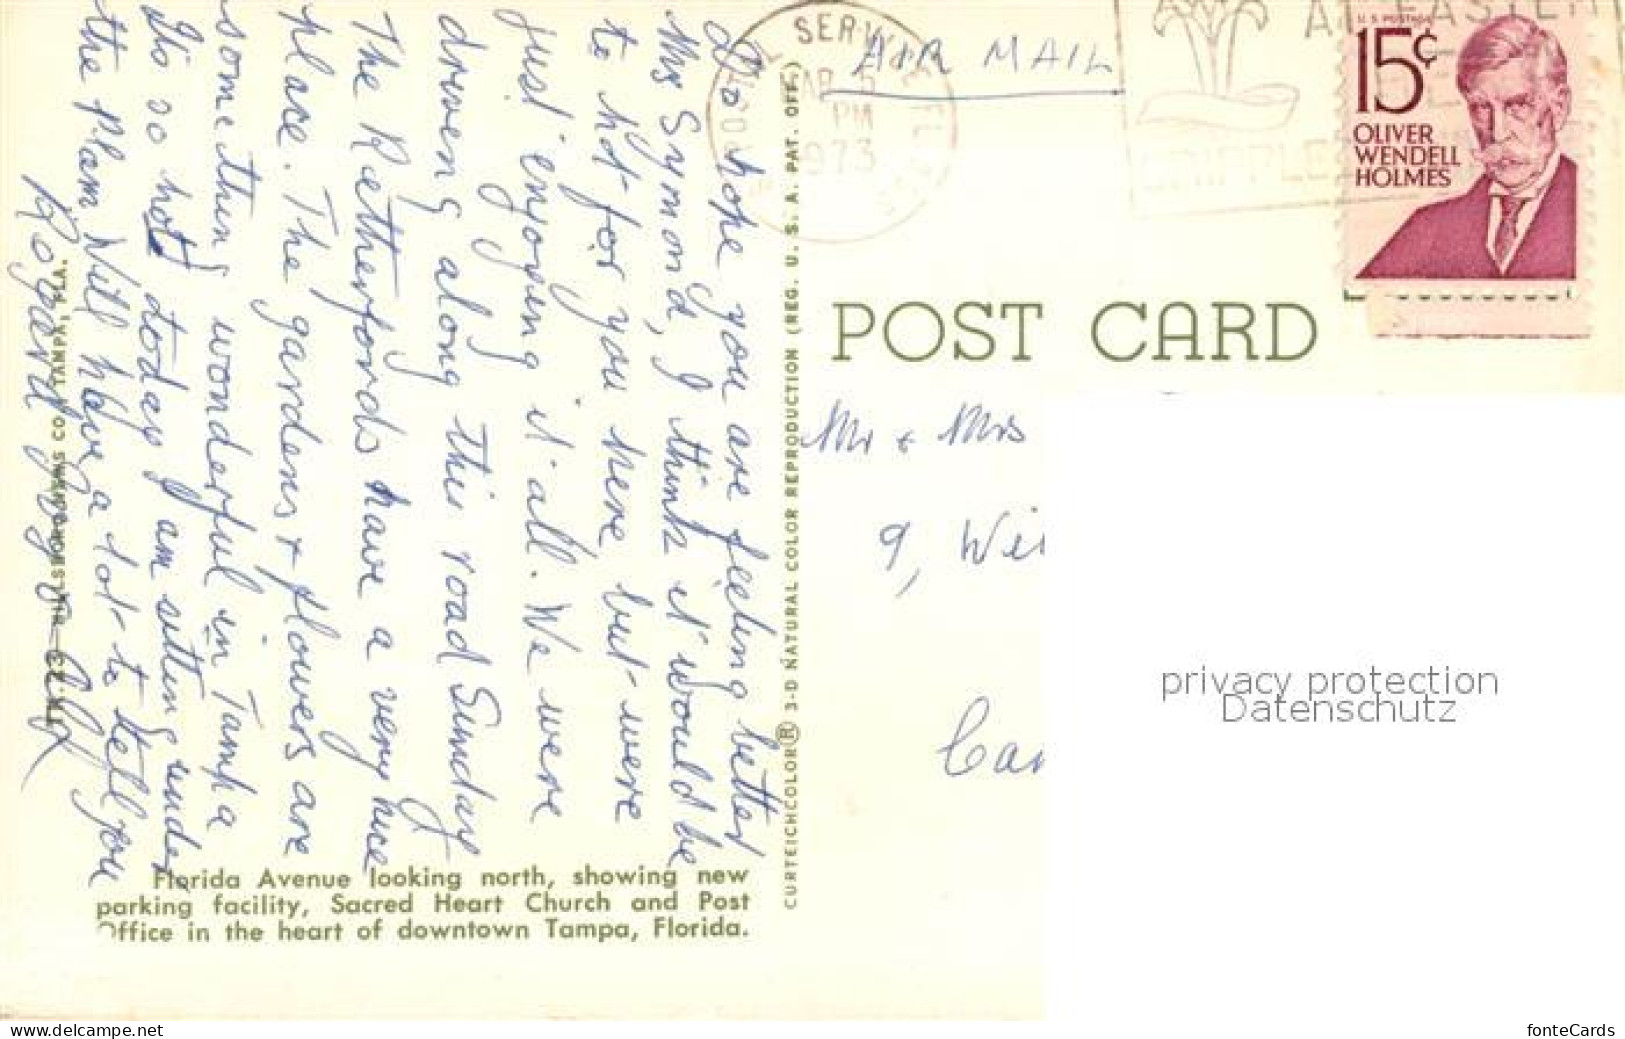 Do hope you are feeling better
Mrs Symonds, I think it would be
to hot for you here but were
just enjoying it all. We were
driveng along this road Sunday
The Retherfords have a very nice
place. The gardens & flowers are
some thing wonderful in Tampa
It's so hot today I am sitting under
the Plam Will have a lot to tell you
Florida Avenue looking north, showing new
parking facility, Sacred Heart Church and Post
Office in the heart of downtown Tampa, Florida.
HILLSBORO NEWS CO., TAMPA, FLA.
CURTEICHCOLOR® 3-D NATURAL COLOR REPRODUCTION (REG. U. S. A. PAT. OFF.)
SERV
PM
1973
AIR MAIL
AT EASTER
CRIPPLE
U.S. POSTAGE
15¢
OLIVER
WENDELL
HOLMES
POST CARD
Mr & Mrs
9, Wi
Car
privacy protection
Datenschutz
www.delcampe.net
fonteCards